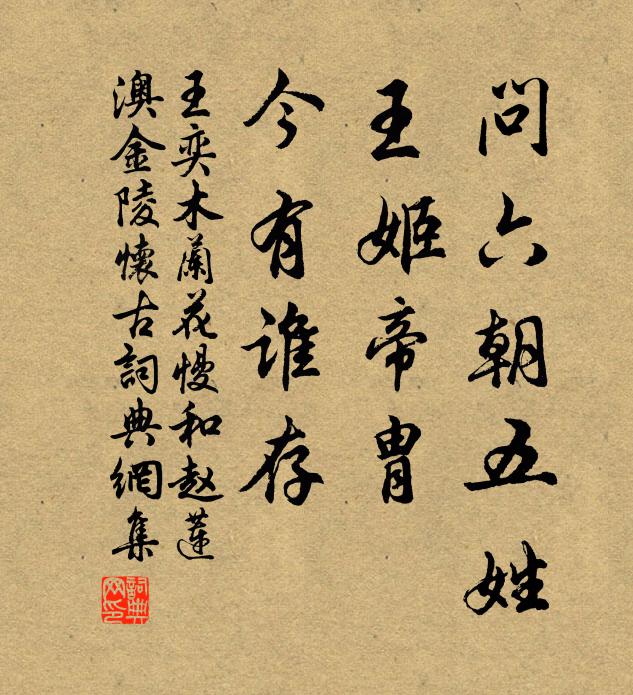 問六朝五姓
王姬帝胄
今有誰存
王奕木蘭花慢和赵蓮
澳金陵懷古詞典網集
詞典
网印